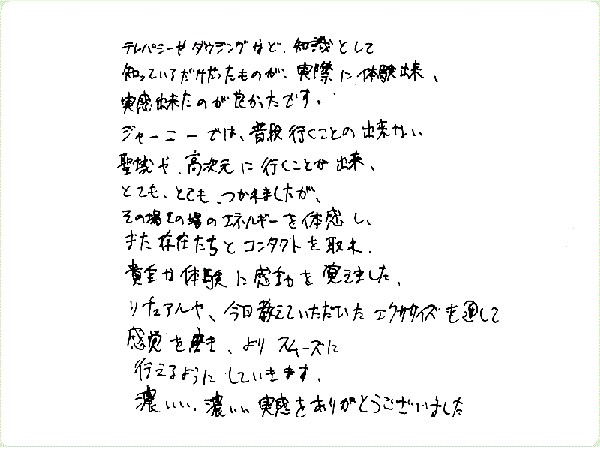 テレパシーやダウジングなど、知識として
知っているだけだったものが、実際に体験出来、
実感出来たのが良かったです。
ジャーニーでは、普段行くことの出来ない
聖域や、高次元に行くことが出来、
とても、とても、つかれましたが、
その場その場のエネルギーを体感し、
また存在たちとコンタクトを取れ、
貴重な体験に感動を覚えました。
リチュアルや、今日教えていただいたエクササイズを通して
感覚を磨き、よりスムーズに
行えるようにしていきます。
濃いい、濃いい実感をありがとうございました